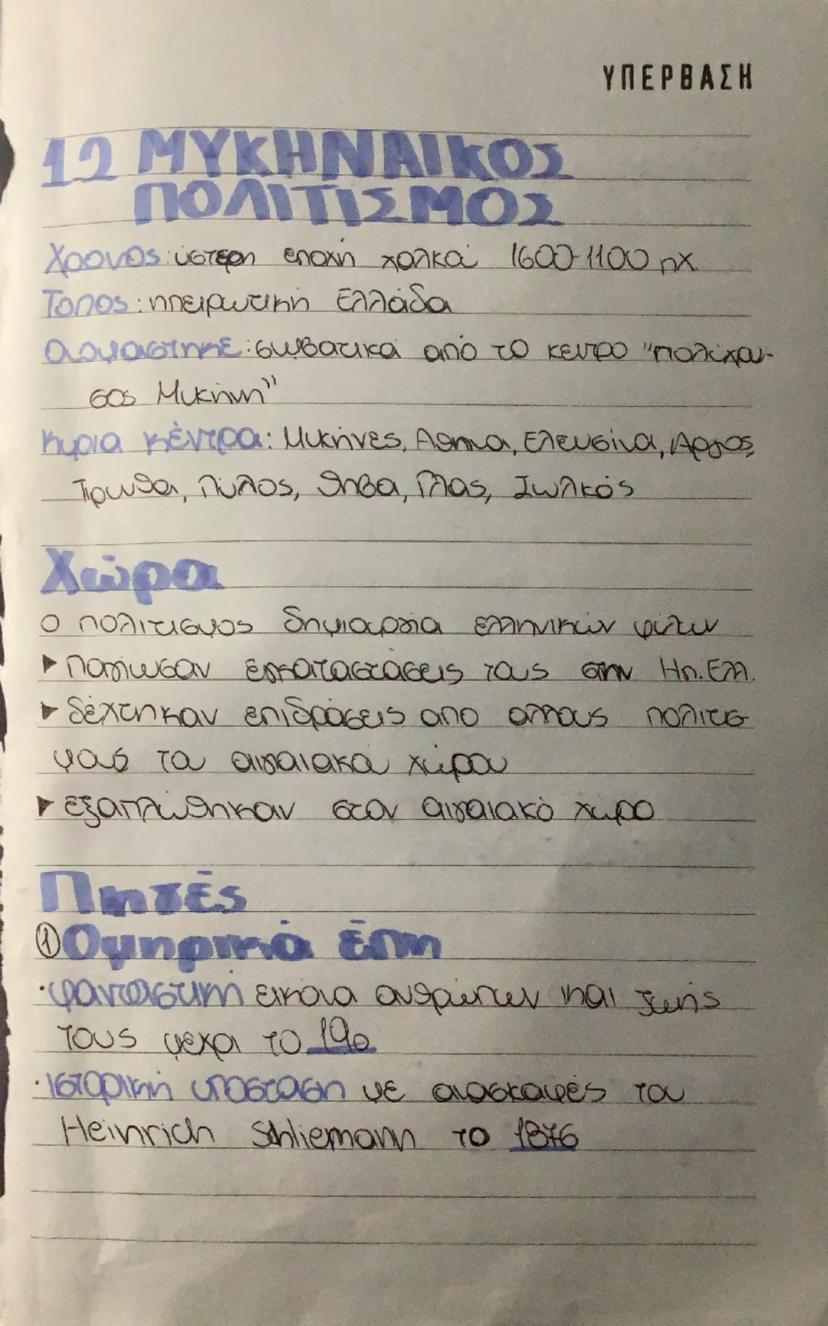 ΥΠΕΡΒΑΣΗ
12 ΜΥΚΗΝΑΙΚΟΣ
ΠΟΛΙΤΙΣΜΟΣ
Χρονος: ύστερη εποχή χαλκά 1600-1100 πχ
Τοπος: ηπειρωτική Ελλάδα
Ονομαστηκε: συμβατικά από το κεντρο "πολύχρυ-
σος Μυκήνη"
κυρια κέντρα: Μυκήνες, Αθηνα, Ελευσίνα, Αργος,
Τιρυνθα, Πύλος, Θηβα, Γλας, Ιωλκός
Χώρα
Ο πολιτισμος δημιουργια ελληνικών φυλων
▸ Παγιωσαν εγκαταστάσεις τους στην Ηπ. Ελλ.
▸ δέχτηκαν επιδράσεις απο αλλους πολιτισ-
μους του αιγαιακου χώρου
▸ εξαπλώθηκαν στον αιγαιακό χώρο
Πηγές
① Ομηρικά έπη
· φανταστικη εικονα ανθρώπων και ζωής
τους μεχρι το 19ο
· ιστορική υποσταση με ανασκαφές του
Heinrich Schliemann το 1876